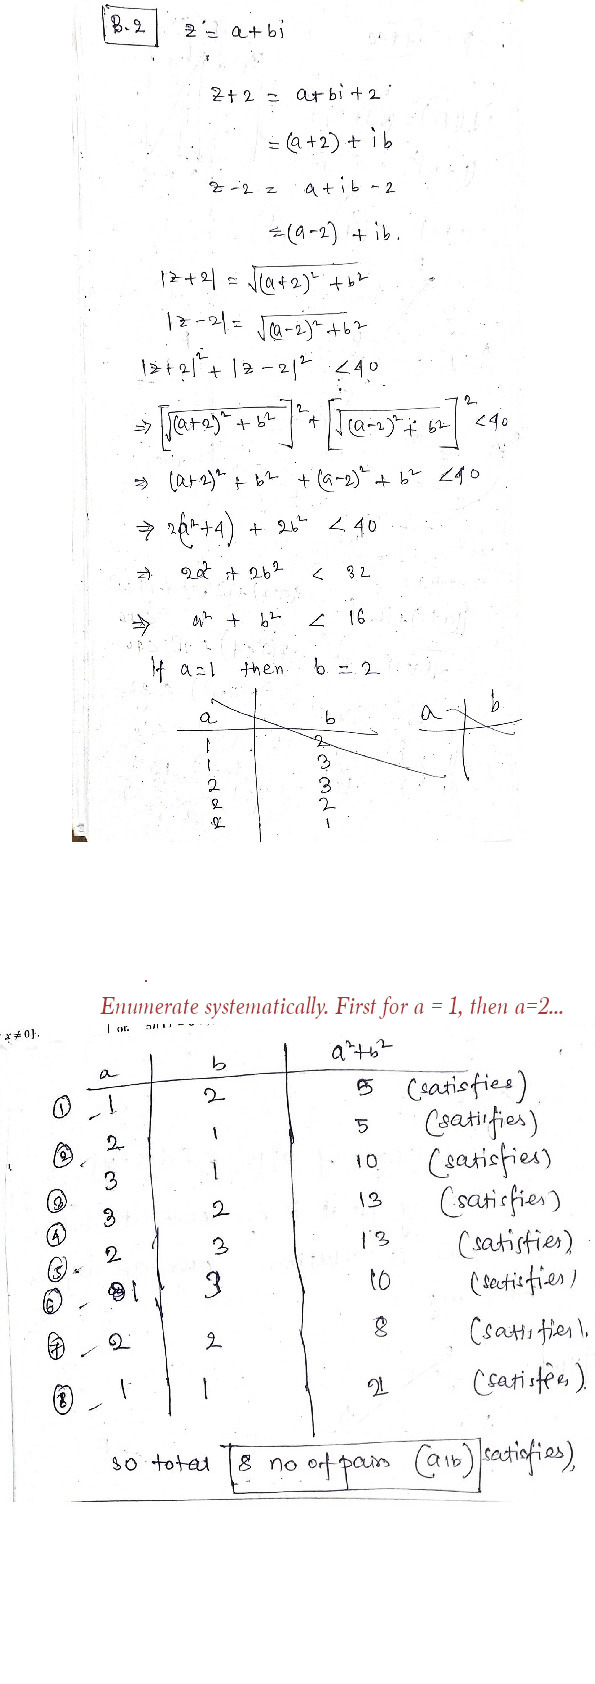 B.2 z = a+bi
z+2 = a+bi+2
= (a+2) + ib
z-2 = a+ib-2
= (a-2) + ib.
|z+2| = √(a+2)² + b²
|z-2| = √(a-2)² + b²
|z+2|² + |z-2|² < 40
⇒ [√(a+2)² + b²]² + [√(a-2)² + b²]² < 40
⇒ (a+2)² + b² + (a-2)² + b² < 40
⇒ 2(a²+4) + 2b² < 40
⇒ 2a² + 2b² < 32
⇒ a² + b² < 16
If a=1 then b = 2
a b a b
1 2
1 3
2 3
2 2
2 1
Enumerate systematically. First for a = 1, then a=2...
x ≠ 0}.
a b a²+b²
① 1 2 5 (satisfies)
② 2 1 5 (satisfies)
3 1 10 (satisfies)
③ 3 2 13 (satisfies)
④ 2 3 13 (satisfies)
⑤
⑥ 1 3 10 (satisfies)
⑦ 2 2 8 (satisfies).
⑧ 1 1 2 (satisfies).
so total 8 no of pairs (a,b) satisfies,